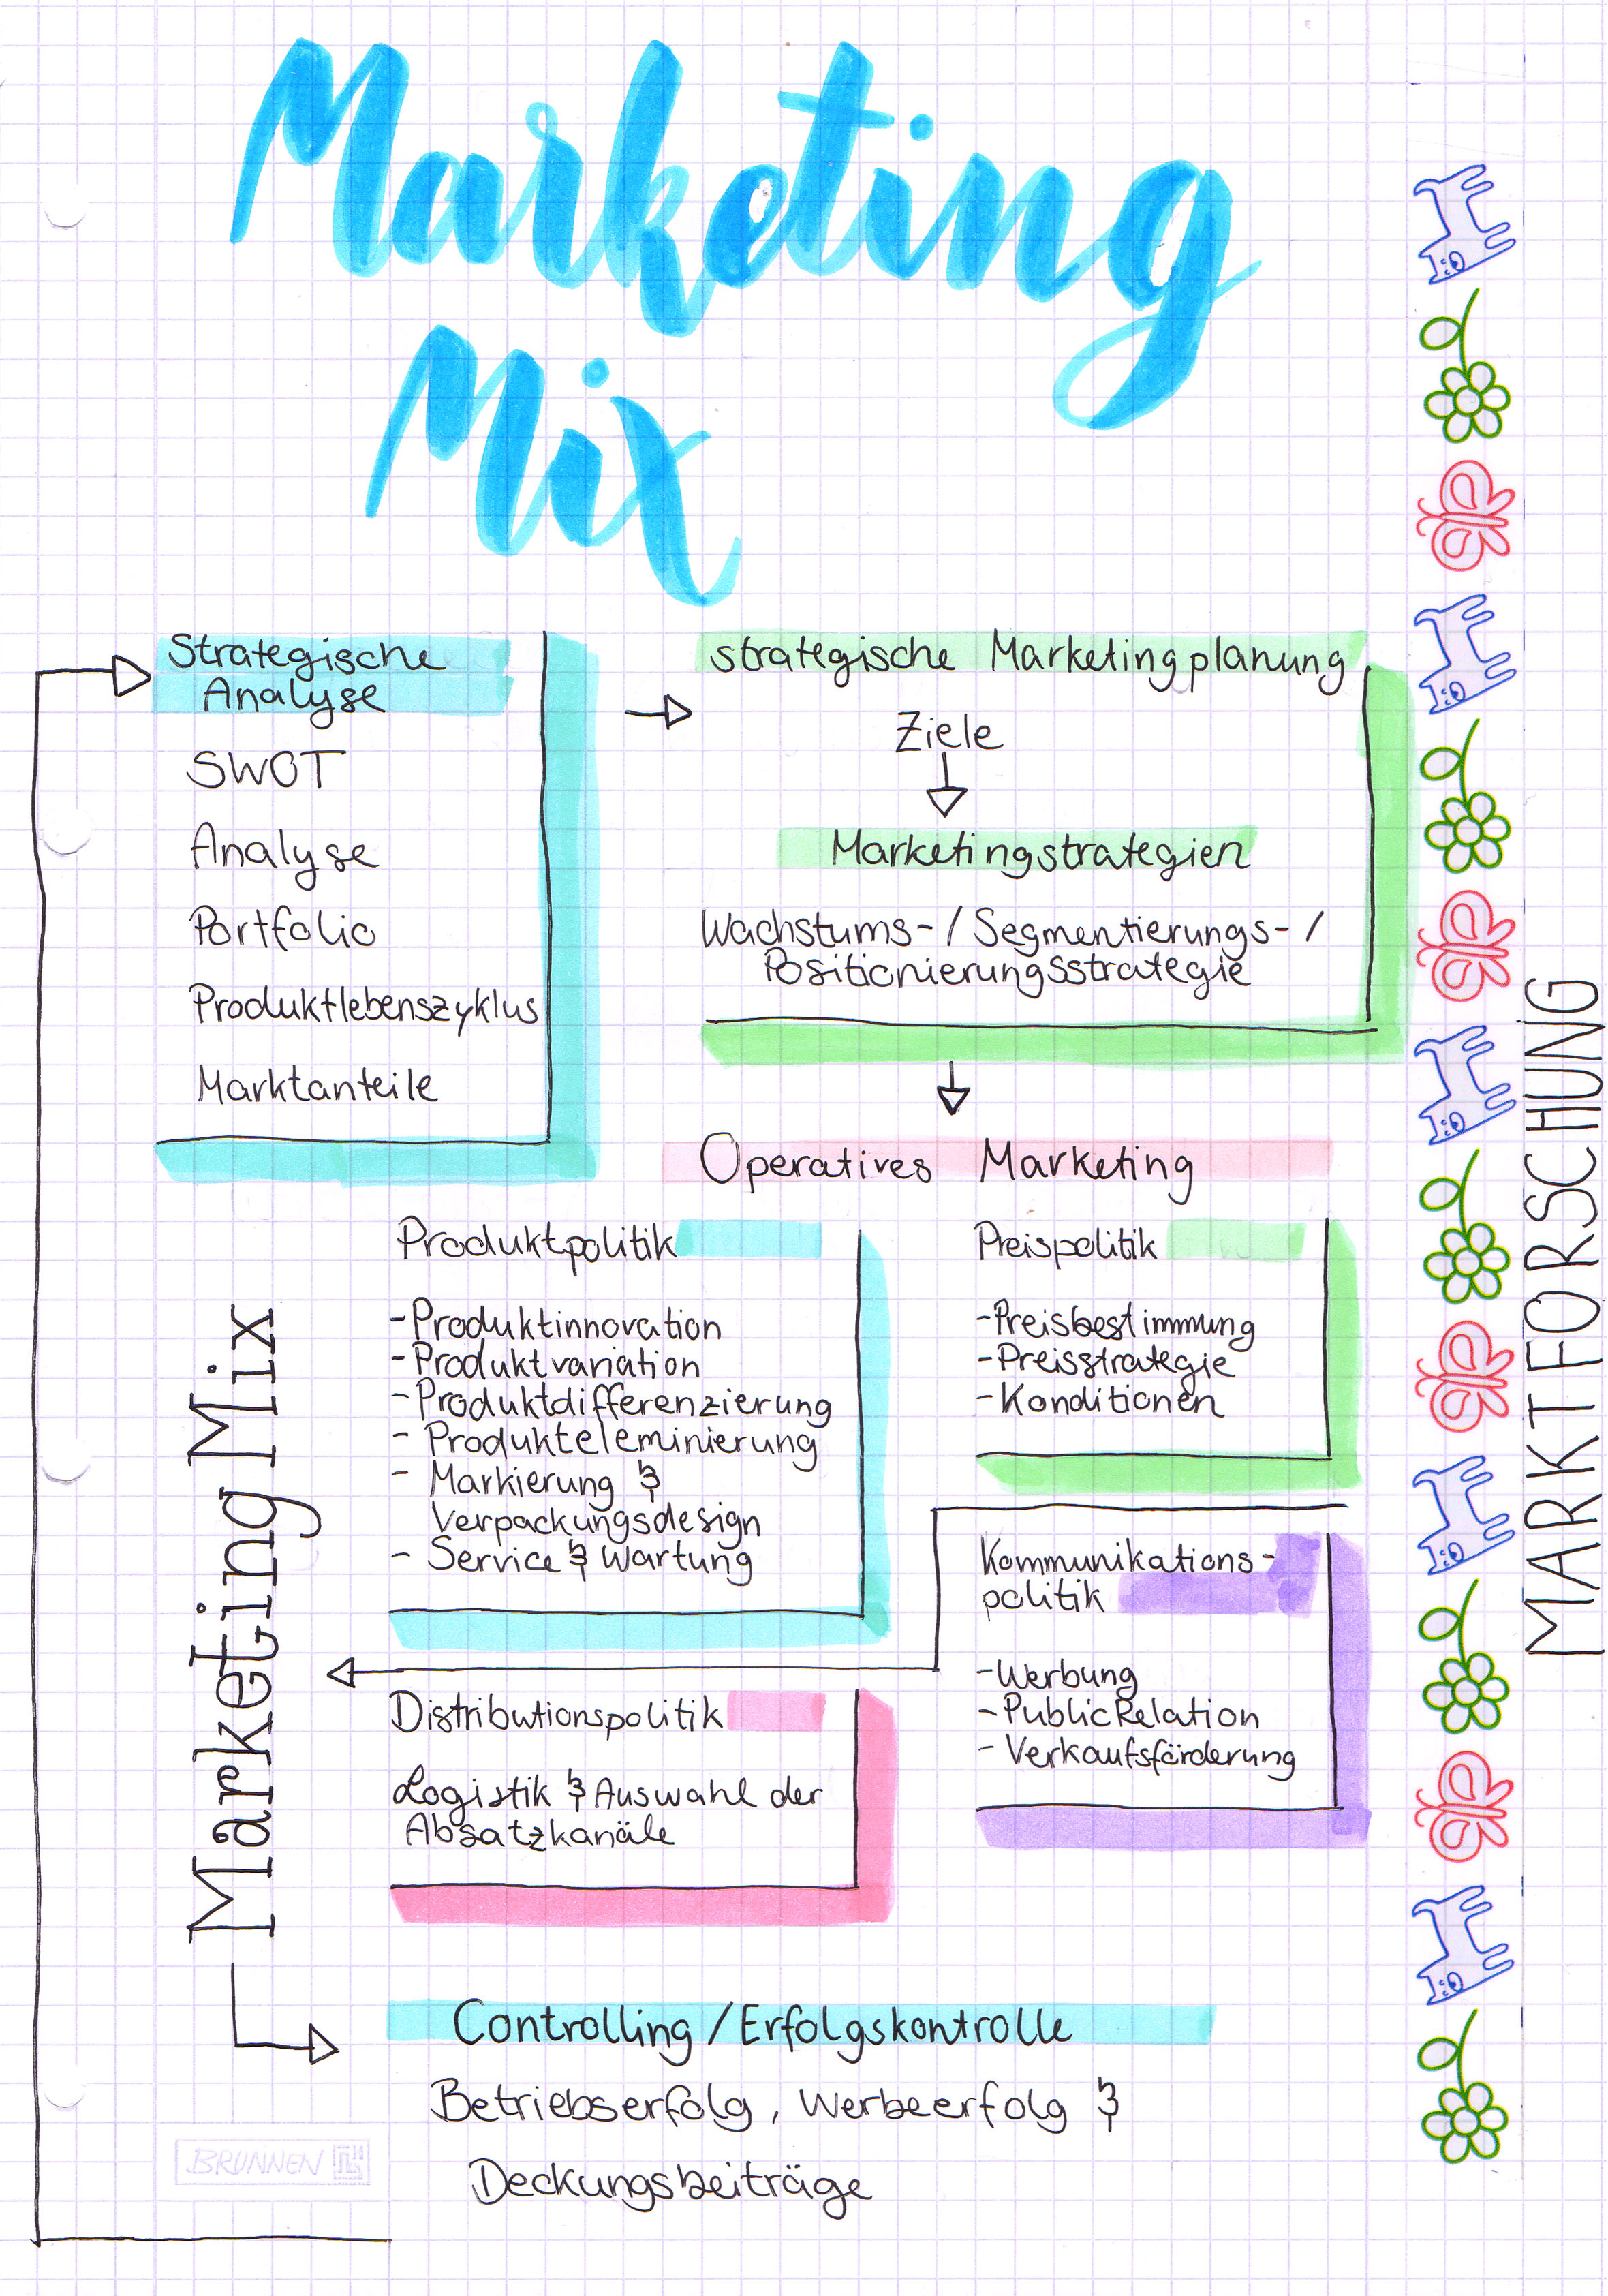 Marketing
Mix
Strategische
Analyse
SWOT
Analyse
Portfolio
Produktlebenszyklus
Marktanteile
strategische Marketingplanung
Ziele
Marketingstrategien
Wachstums-/Segmentierungs-/
Positionierungsstrategie
Operatives Marketing
Produktpolitik
-Produktinnovation
-Produktvariation
-Produktdifferenzierung
- Produkteleminierung
- Markierung &
Verpackungsdesign
- Service & Wartung
Preispolitik
-Preisbestimmung
-Preisstrategie
-Konditionen
Kommunikations-
politik
-Werbung
-Public Relation
-Verkaufsförderung
Distributionspolitik
Logistik & Auswahl der
Absatzkanäle
Marketing Mix
Controlling/Erfolgskontrolle
Betriebserfolg, Werbeerfolg &
Deckungsbeiträge
BRUNNEN
MARKTFORSCHUNG